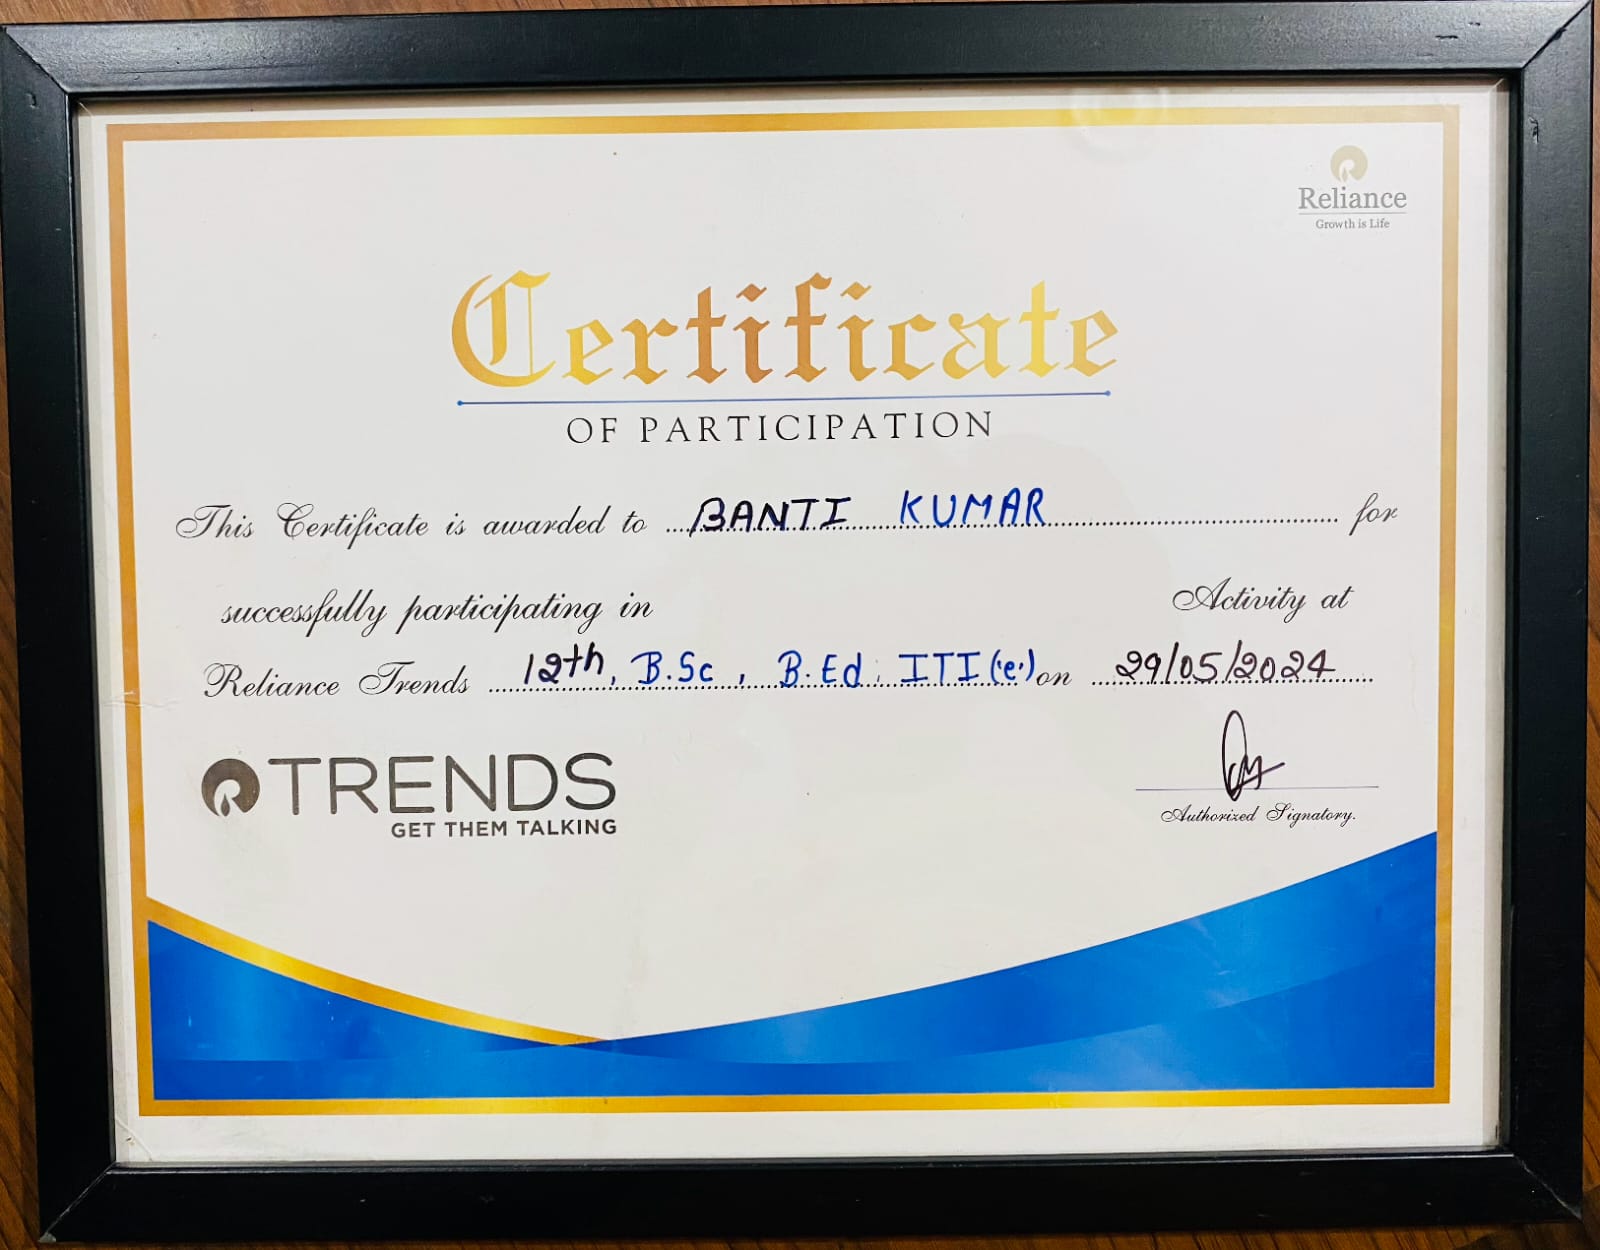 Reliance
Growth is Life
Certificate
OF PARTICIPATION
This Certificate is awarded to BANTI KUMAR for
successfully participating in Activity at
Reliance Trends 12th, B.Sc, B.Ed, ITI (e) on 29/05/2024
TRENDS
GET THEM TALKING
Authorized Signatory.